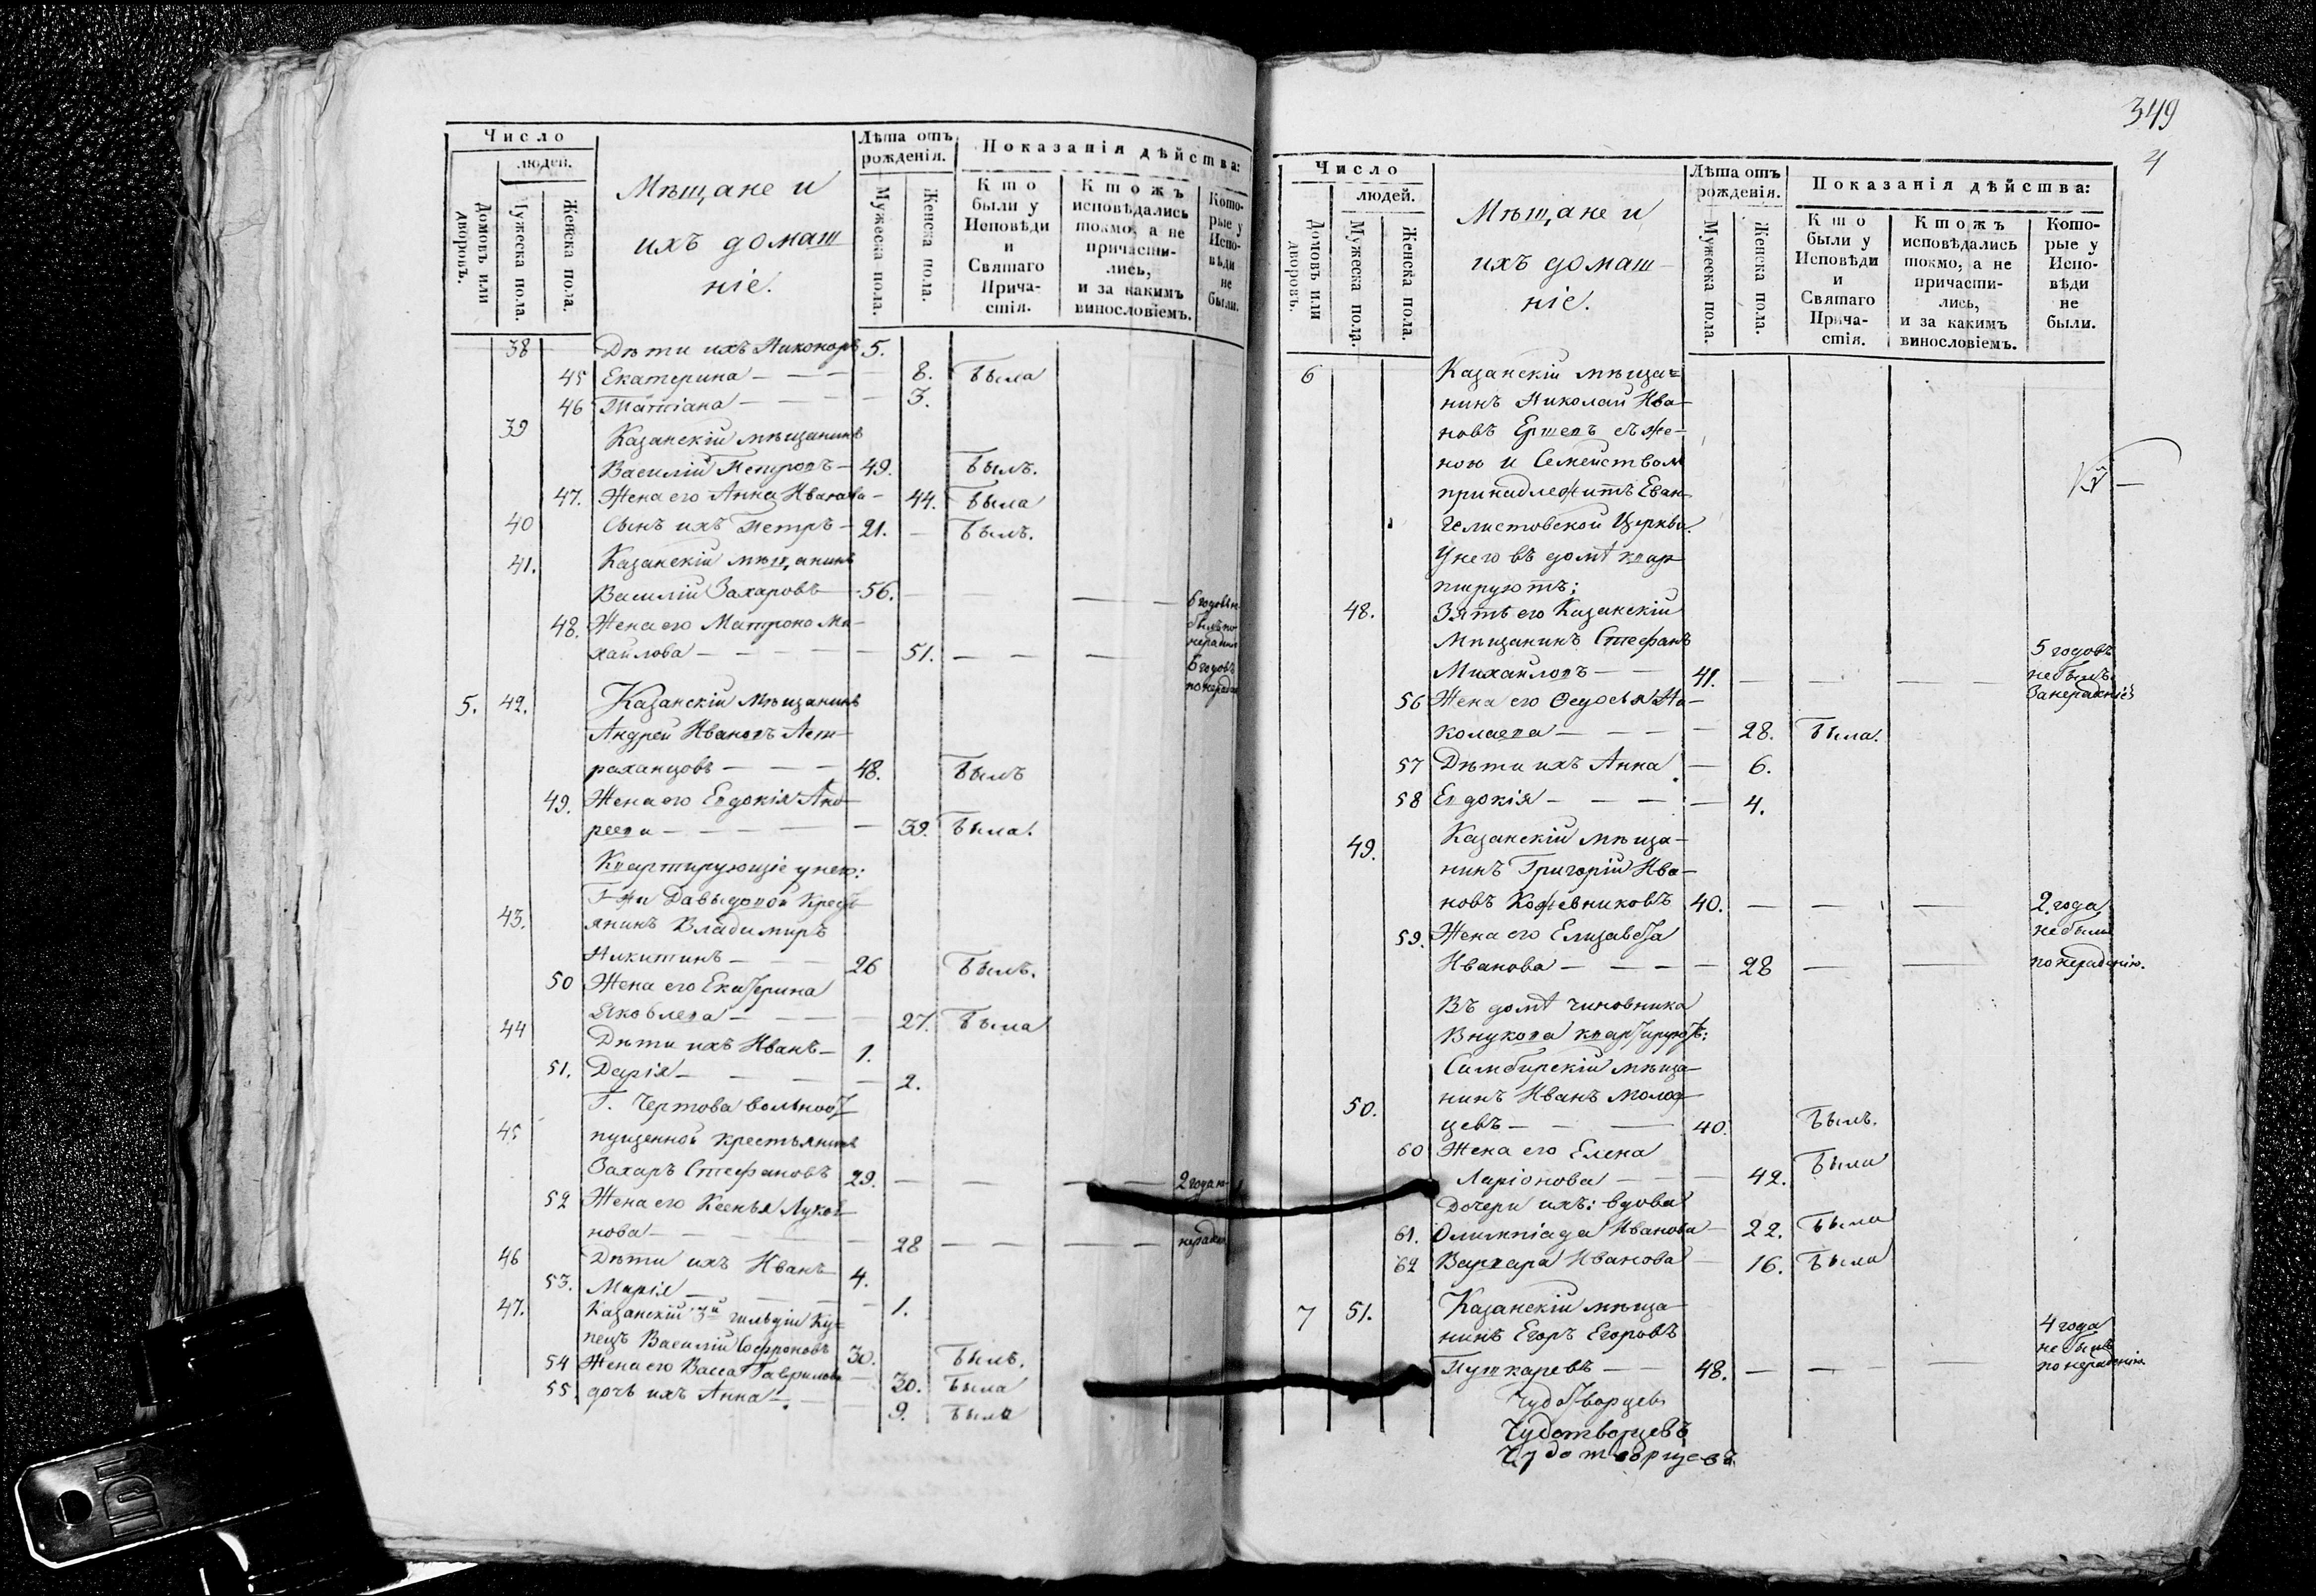 Число
людей.
Домовъ или дворовъ.
Мужеска пола.
Женска пола.
Мѣщане и
ихъ домаш
ніе.
Лѣта отъ рожденія.
Мужеска пола.
Женска пола.
Показанія дѣйства:
Кто были у Исповѣди и Святаго Прича-стія.
Ктожъ исповѣдались токмо, а не причасти-лись, и за какимъ винословіемъ.
Кото-рые у Испо-вѣди не были.
38 Дѣти ихъ Никоноръ 5.
45 Екатерина — — — 8. Была
46 Татіана — — — 3.
39 Казанскій мѣщанинъ
Василій Петровъ — 49. Былъ.
47. Жена его Анна Иванова — 44. Была
40 Сынъ ихъ Петръ — 21. — Былъ.
41. Казанскій мѣщанинъ
Василій Захаровъ — 56. — — — 6 годовъ н
48. Жена его Матрона Ми-
хайлова — — — 51. — — — 6 годовъ
по нерад
5. 42. Казанскій мѣщанинъ
Андрей Ивановъ Аст-
раханцовъ — — — 48. Былъ
49. Жена его Евдокія Анд-
реева — — — — 39. Была.
Квартирующіе у него:
Г-жи Давыдовой Кресть
43. янинъ Владимиръ
Никитинъ — — 26 Былъ.
50 Жена его Екатерина
Яковлева — — — 27. Была
44 Дѣти ихъ Иванъ — 1.
51. Дарія — — — — 2.
Г. Чертова вольноот
45 пущенной крестьянинъ
Захаръ Стефановъ 29. — — — — 2 года н
52 Жена его Ксенья Лукоя-
нова — — — — 28 — — — — нерад
46 Дѣти ихъ Иванъ 4.
53. Марія — — — — 1.
47. Казанскій 3й гильдіи Ку-
пецъ Василій Софроновъ 30. Былъ.
54 Жена его Васса Гаврилова — 30. Была
55. дочь ихъ Анна — . — 9. Была
349
4
Число
людей.
Домовъ или дворовъ.
Мужеска пола.
Женска пола.
Мѣщане и
ихъ домаш-
ніе.
Лѣта отъ рожденія.
Мужеска пола.
Женска пола.
Показанія дѣйства:
Кто были у Исповѣди и Святаго Прича-стія.
Ктожъ исповѣдались токмо, а не причасти-лись, и за какимъ винословіемъ.
Кото-рые у Испо-вѣди не были.
6 Казанскій мѣща=
нинъ Николай Ива-
новъ Ершевъ съ же-
ною и Семействомъ
принадлежитъ Еван-
гелистовской Церкви.
У него въ домѣ квар-
тируютъ;
48. Зять его Казанскій
Мѣщанинъ Стефанъ
Михайловъ — — 41. — — — — 5 годовъ
не былъ
За нераденіе
56 Жена его Ѳедосья Ни-
колаева — — — — 28. Была.
57 Дѣти ихъ Анна — 6.
58 Евдокія — — — — 4.
49. Казанскій мѣща-
нинъ Григорій Ива-
новъ Кожевниковъ 40. — — — 2. года
не были
59. Жена его Елизавета
Иванова — — — — 28 — — по нераденію.
Въ домѣ чиновника
Внукова квартируютъ:
Симбирскій мѣща-
50. нинъ Иванъ Молод-
цевъ — — — 40. Былъ.
60 Жена его Елена
Ларіонова — — — 42. Была
Дочери ихъ: вдова
61. Олимпіада Иванова — 22. Была
62 Варвара Иванова — 16. Была
7 51. Казанскій мѣща-
нинъ Егоръ Егоровъ
Пушкаревъ — — 48. — — — 4 года
не былъ
по нераденію
Чудотворцевъ
Чудотворцевъ
Чудотворцевъ